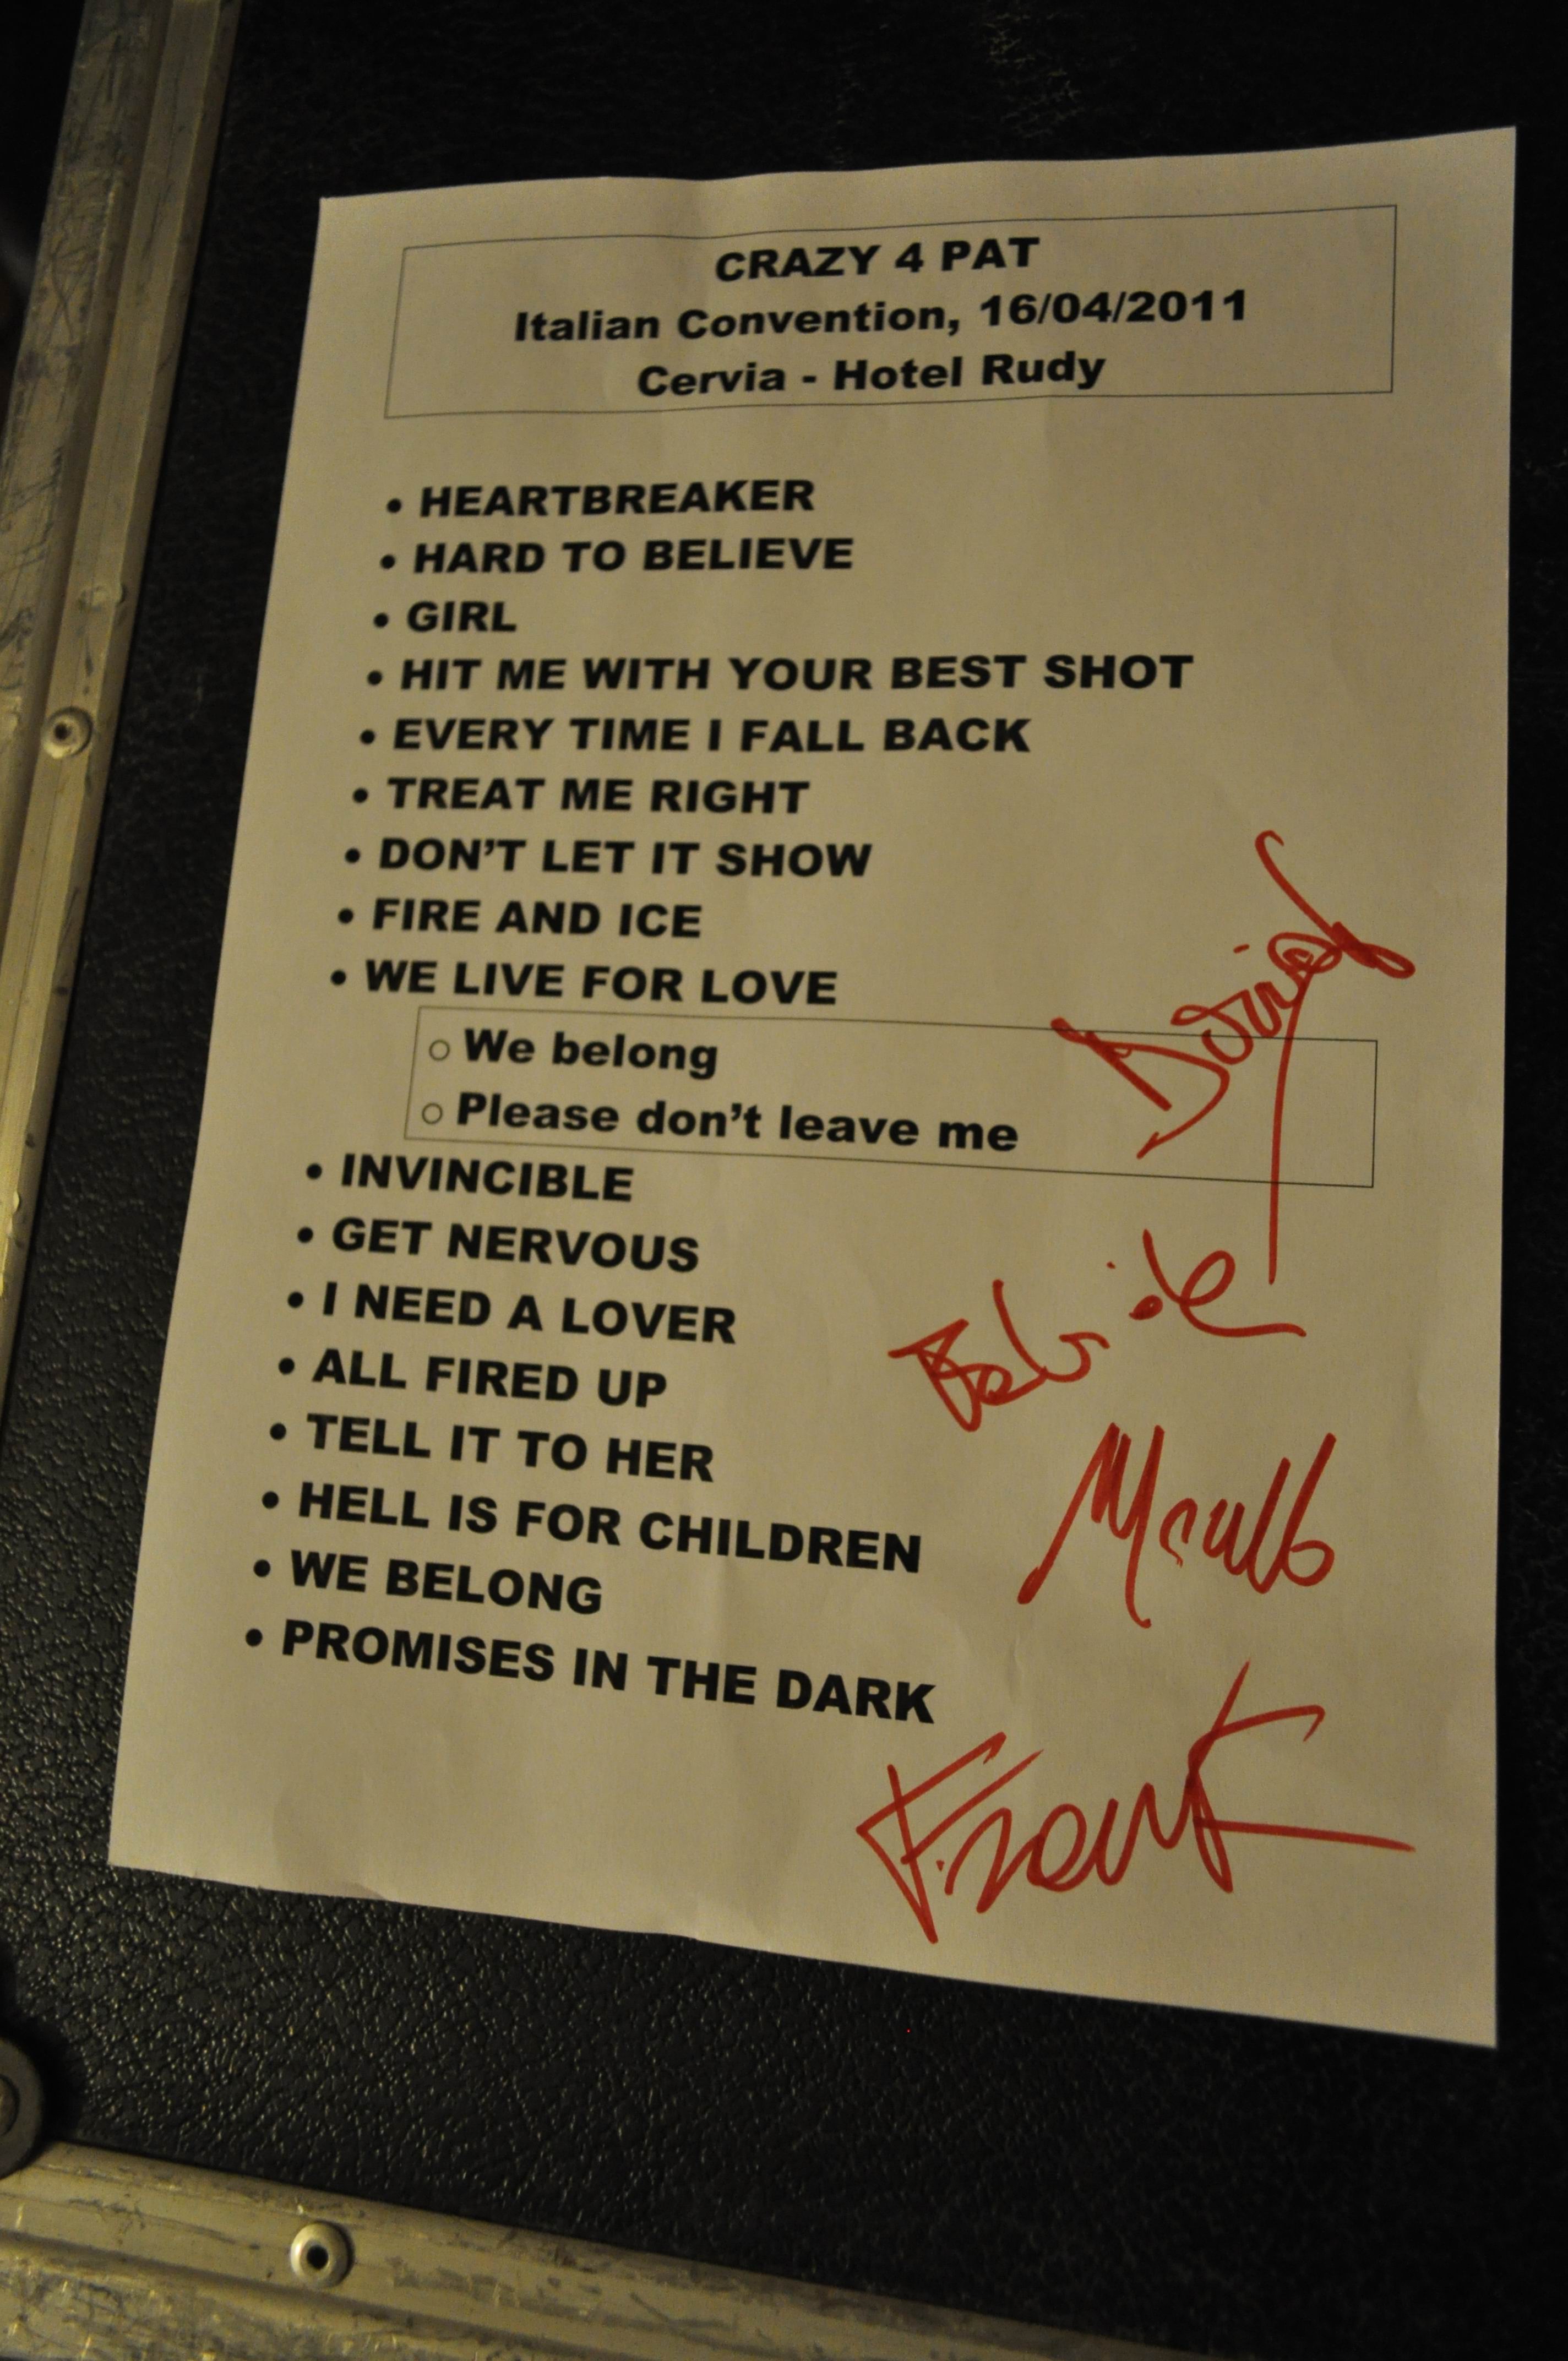 CRAZY 4 PAT
Italian Convention, 16/04/2011
Cervia - Hotel Rudy
• HEARTBREAKER
• HARD TO BELIEVE
• GIRL
• HIT ME WITH YOUR BEST SHOT
• EVERY TIME I FALL BACK
• TREAT ME RIGHT
• DON'T LET IT SHOW
• FIRE AND ICE
• WE LIVE FOR LOVE
○ We belong
○ Please don't leave me
• INVINCIBLE
• GET NERVOUS
• I NEED A LOVER
• ALL FIRED UP
• TELL IT TO HER
• HELL IS FOR CHILDREN
• WE BELONG
• PROMISES IN THE DARK
Frank